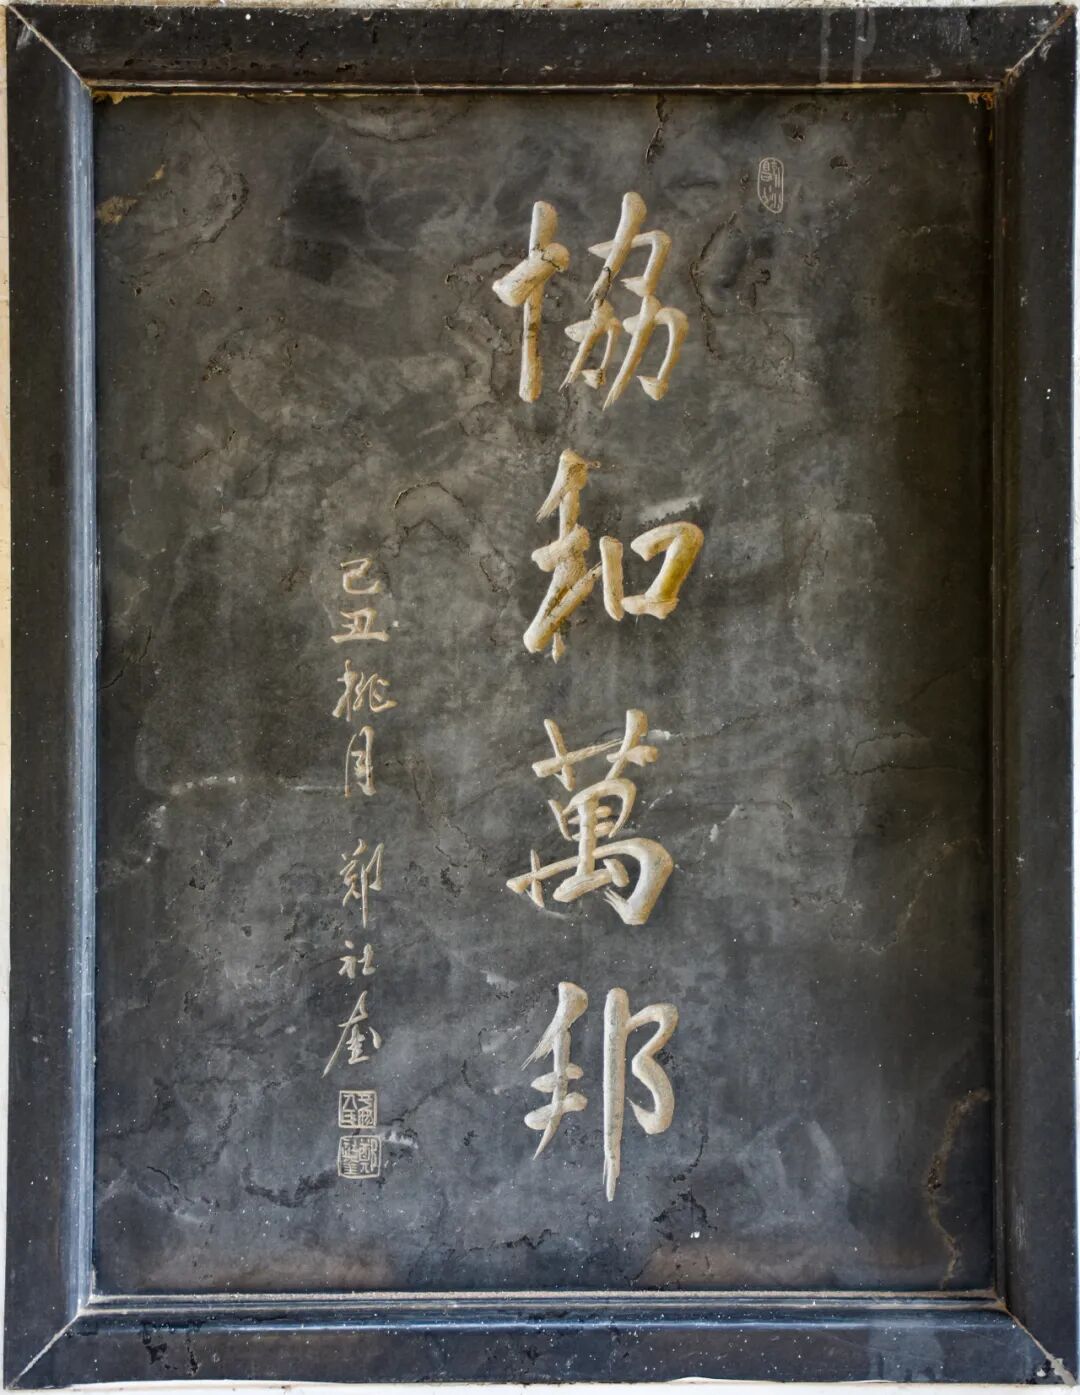 協和萬邦
己丑桃月 鄭社奎